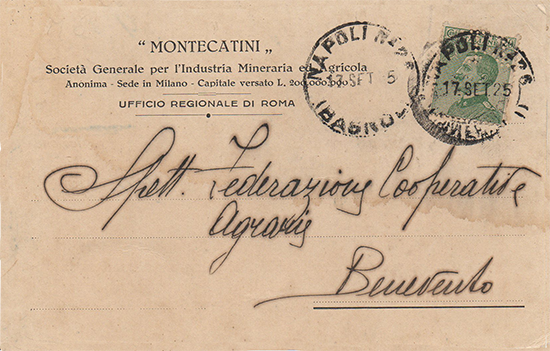 " MONTECATINI „
Società Generale per l'Industria Mineraria ed Agricola
Anonima - Sede in Milano - Capitale versato L. 200.000.000
UFFICIO REGIONALE DI ROMA
NAPOLI
17·SET 5
(BAGNOLI
NAPOLI
17·SET 25
Spett. Federazione Cooperative
Agrarie
Benevento